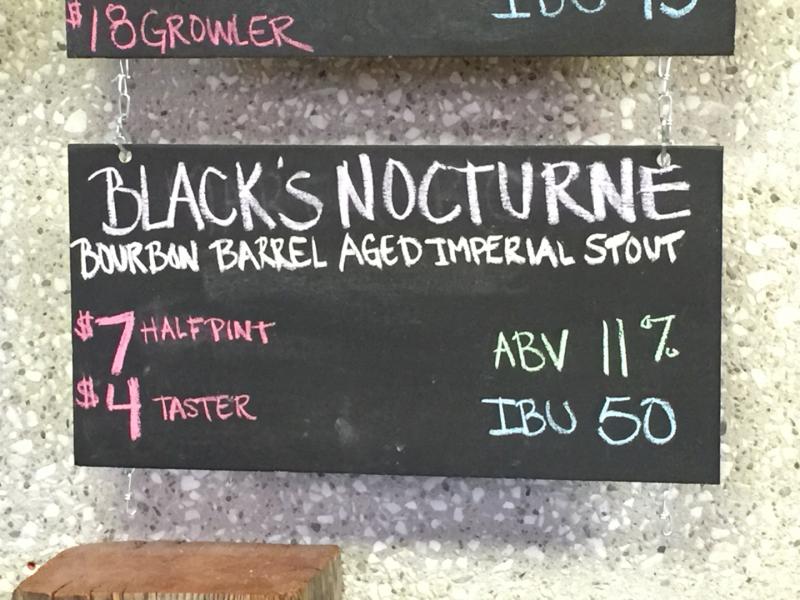 $18 GROWLER
BLACK'S NOCTURNE
BOURBON BARREL AGED IMPERIAL STOUT
$7 HALFPINT
ABV 11%
$4 TASTER
IBU 50